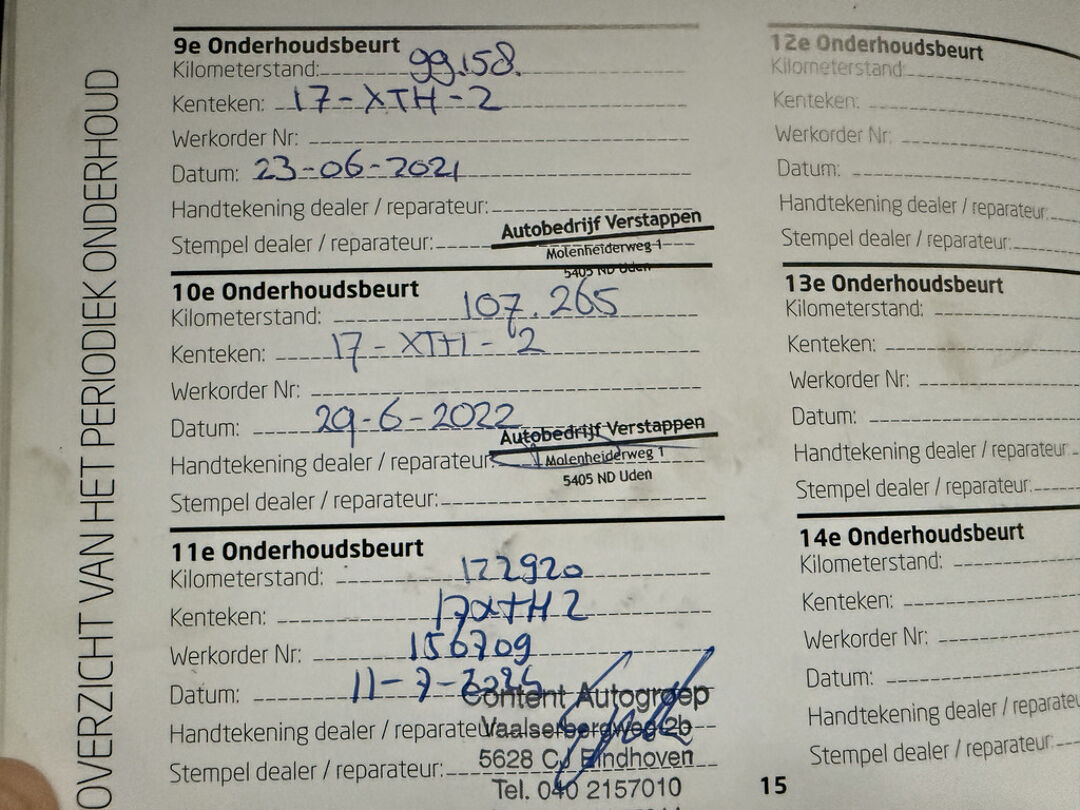 OVERZICHT VAN HET PERIODIEK ONDERHOUD
9e Onderhoudsbeurt
Kilometerstand: 99.158.
Kenteken: 17-XTH-2
Werkorder Nr:
Datum: 23-06-2021
Handtekening dealer / reparateur:
Stempel dealer / reparateur:
Autobedrijf Verstappen
Molenheiderweg 1
5405 ND Uden
10e Onderhoudsbeurt
Kilometerstand: 107.265
Kenteken: 17-XTH-2
Werkorder Nr:
Datum: 29-6-2022
Handtekening dealer / reparateur:
Stempel dealer / reparateur:
Autobedrijf Verstappen
Molenheiderweg 1
5405 ND Uden
11e Onderhoudsbeurt
Kilometerstand: 122920
Kenteken: 17XTH2
Werkorder Nr: 156709
Datum: 11-7-
Handtekening dealer / reparate
Stempel dealer / reparateur:
Content Autogroep
Vaalserbergweg 2b
5628 CJ Eindhoven
Tel. 040 2157010
12e Onderhoudsbeurt
Kilometerstand:
Kenteken:
Werkorder Nr:
Datum:
Handtekening dealer / reparateur:
Stempel dealer / reparateur:
13e Onderhoudsbeurt
Kilometerstand:
Kenteken:
Werkorder Nr:
Datum:
Handtekening dealer / reparateur
Stempel dealer / reparateur:
14e Onderhoudsbeurt
Kilometerstand:
Kenteken:
Werkorder Nr:
Datum:
Handtekening dealer / reparateu
Stempel dealer / reparateur:
15